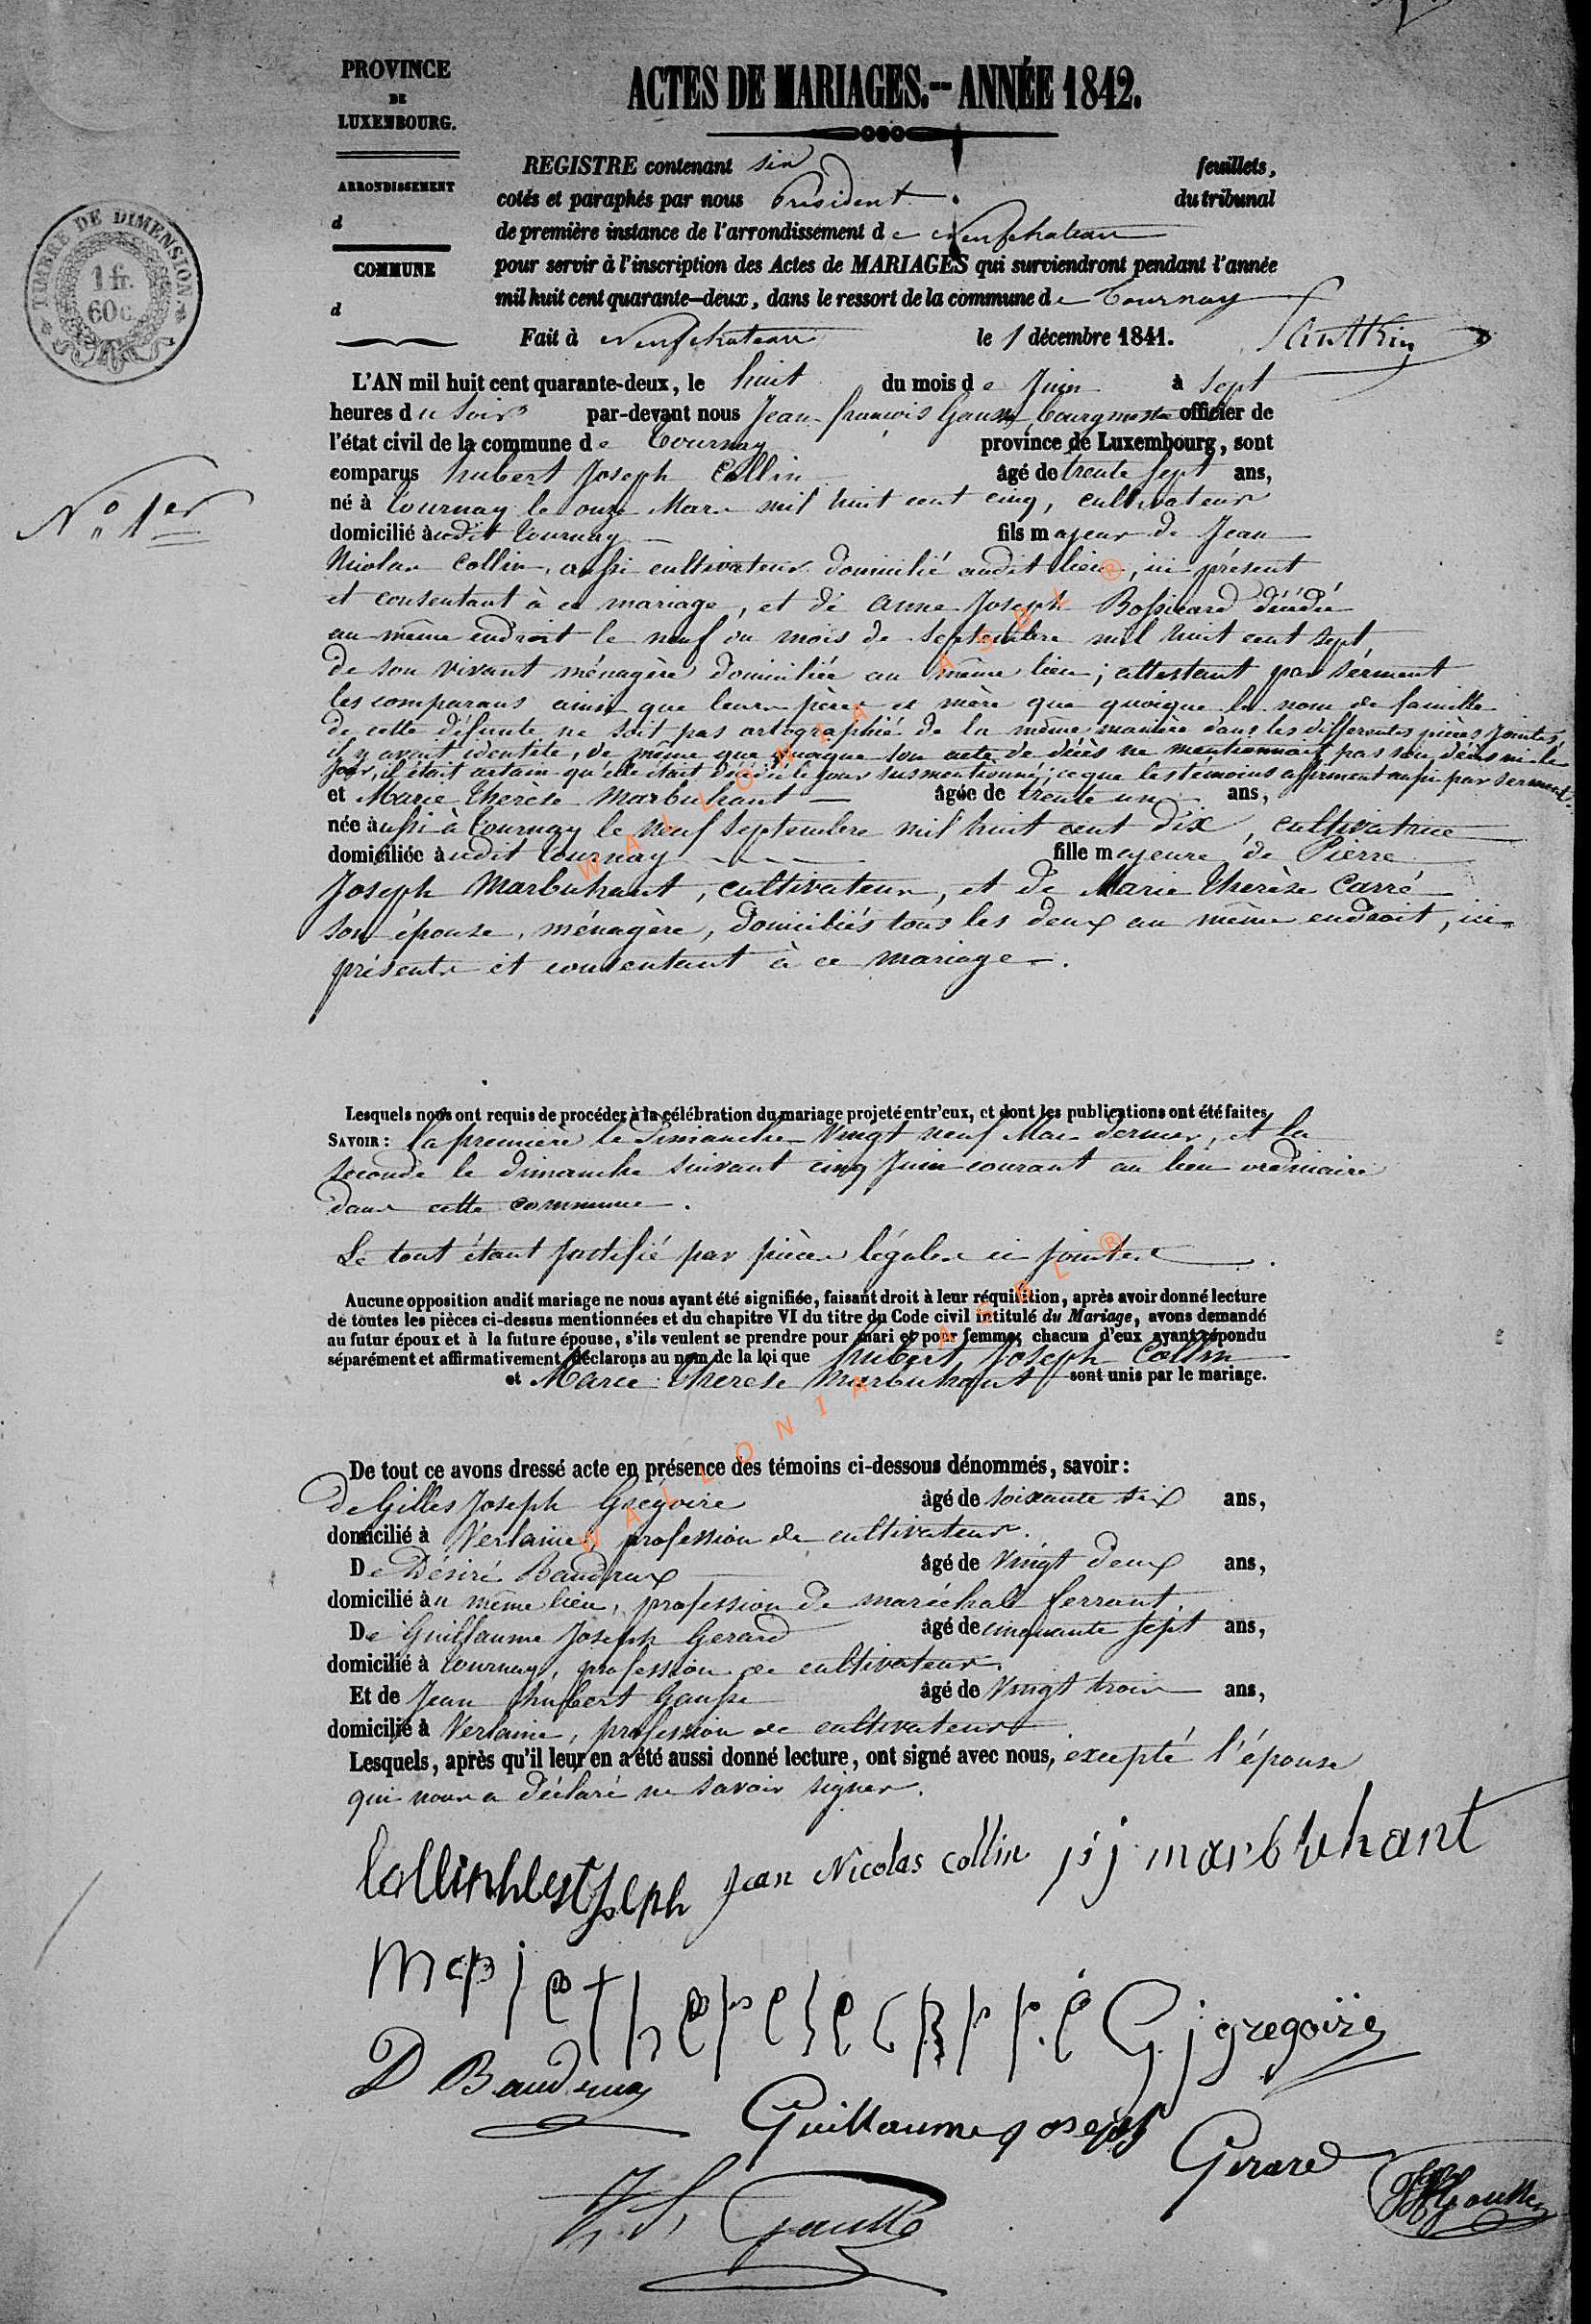 PROVINCE
DE
LUXEMBOURG.
ARRONDISSEMENT
d
COMMUNE
d
TIMBRE DE DIMENSION.
1 fr.
60 c.
ACTES DE MARIAGES.-- ANNÉE 1842.
REGISTRE contenant six feuillets,
cotés et paraphés par nous Président du tribunal
de première instance de l'arrondissement de Neufchateau
pour servir à l'inscription des Actes de MARIAGES qui surviendront pendant l'année
mil huit cent quarante-deux, dans le ressort de la commune de Tournay
Fait à Neufchateau le 1 décembre 1841.
L'AN mil huit cent quarante-deux, le huit du mois de Juin à Sept
heures du Soir par-devant nous Jean françois Gausse, bourgmestre officier de
l'état civil de la commune de Tournay province de Luxembourg, sont
N° 1er
comparus hubert Joseph Collin âgé de trente sept ans,
né à Tournay le onze Mars mil huit cent cinq, cultivateur
domicilié audit Tournay fils majeur de Jean
Nicolas Collin, aussi cultivateur domicilié audit lieu, ici présent
et consentant à ce mariage, et de Anne Joseph Bossicard décédée
au même endroit le neuf du mois de Septembre mil huit cent sept
de son vivant ménagère domiciliée au même lieu; attestant par sérment
les comparans ainsi que leurs pères et mère que quoique le nom de famille
de cette défunte ne soit pas ortographié de la même manière dans les differentes pièces jointes,
il y avait identité, de même que quoique son acte de décès ne mentionnait pas son décès ni le
jour, il était certain qu'elle était décédée le jour susmentionné; ce que les témoins affirment aussi par serment.
et Marie Therèse Marbuhant âgée de trente un ans,
née aussi à Tournay le neuf Septembre mil huit cent dix, cultivatrice
domiciliée audit Tournay fille majeure de Pierre
Joseph Marbuhant, cultivateur, et de Marie Therèse Carré
son épouse, ménagère, domiciliés tous les deux au même endroit, ici
présents et consentant à ce mariage.
Lesquels nous ont requis de procéder à la célébration du mariage projeté entr'eux, et dont les publications ont été faites
SAVOIR: la première le Dimanche Vingt neuf Mai dernier, et la
seconde le dimanche suivant cinq Juin courant au lieu ordinaire
dans cette commune.
Le tout étant justifié par pièces légales ci jointes.
Aucune opposition audit mariage ne nous ayant été signifiée, faisant droit à leur réquisition, après avoir donné lecture
de toutes les pièces ci-dessus mentionnées et du chapitre VI du titre du Code civil intitulé du Mariage, avons demandé
au futur époux et à la future épouse, s'ils veulent se prendre pour mari et pour femme; chacun d'eux ayant répondu
séparément et affirmativement, déclarons au nom de la loi que hubert Joseph Collin
et Marie Therèse Marbuhant sont unis par le mariage.
De tout ce avons dressé acte en présence des témoins ci-dessous dénommés, savoir:
de Gilles Joseph Grégoire âgé de soixante six ans,
domicilié à Verlaine, profession de cultivateur.
De Désiré Baudrux âgé de Vingt deux ans,
domicilié au même lieu, profession de maréchal ferrant.
De Guillaume Joseph Gerard âgé de cinquante sept ans,
domicilié à Tournay, profession de cultivateur.
Et de Jean hubert Gausse âgé de Vingt trois ans,
domicilié à Verlaine, profession de cultivateur
Lesquels, après qu'il leur en a été aussi donné lecture, ont signé avec nous, excepté l'épouse
qui nous a déclaré ne savoir signer.
Jean Nicolas Collin p j marbuhant
marie therese carré G j gregoire
D Baudrux
Guillaume joseph Gerard
J. h. Gausse
WALLONIA ASBL ®
WALLONIA ASBL ®